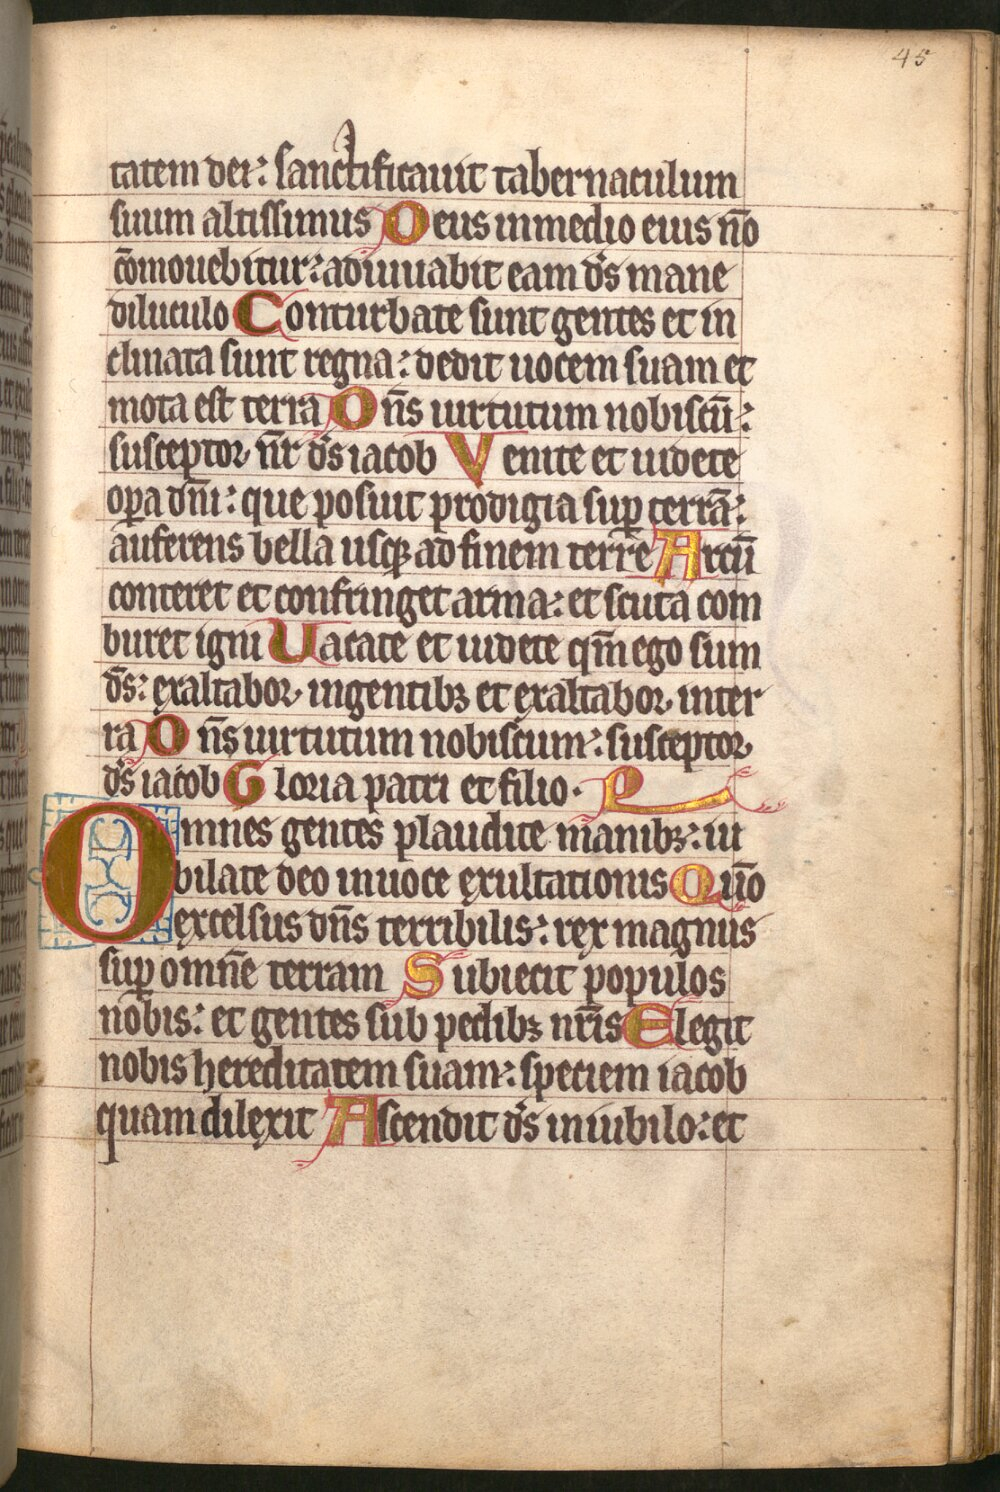 45
tatem dei: sanctificauit tabernaculum
suum altissimus Deus inmedio eius nō
cōmouebitur: adiuuabit eam d̄s mane
diluculo Conturbate sunt gentes et in
clinata sunt regna: dedit uocem suam et
mota est terra Dn̄s uirtutum nobiscū:
susceptor nr̄ d̄s iacob Venite et uidete
oꝑa dn̄i: que posuit prodigia suꝑ terrā:
auferens bella usqꝫ ad finem terre Arcū
conteret et confringet arma: et scuta com
buret igni Uacate et uidete qm̄ ego sum
d̄s: exaltabor ingentibꝫ et exaltabor inter
ra Dn̄s uirtutum nobiscum: susceptor
d̄s iacob Gloria patri et filio. P
Omnes gentes plaudite manibꝫ: iu
bilate deo inuoce exultationis Qm̄o
excelsus dn̄s terribilis: rex magnus
suꝑ omnē terram Subiecit populos
nobis: et gentes sub pedibꝫ nr̄is Elegit
nobis hereditatem suam: speciem iacob
quam dilexit Ascendit d̄s iniubilo: et